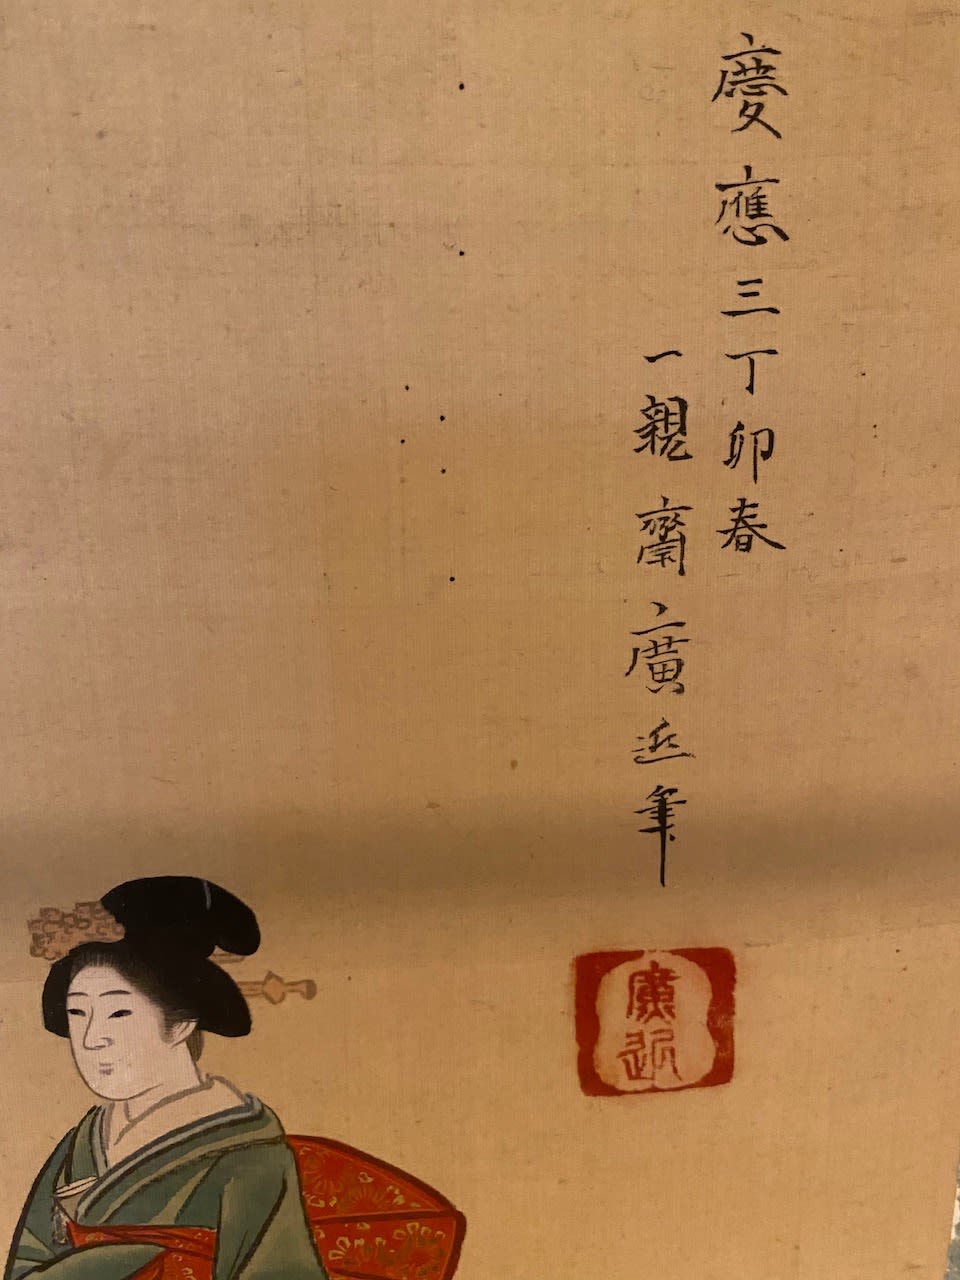 慶應三丁卯春
一親齋廣近筆
廣近